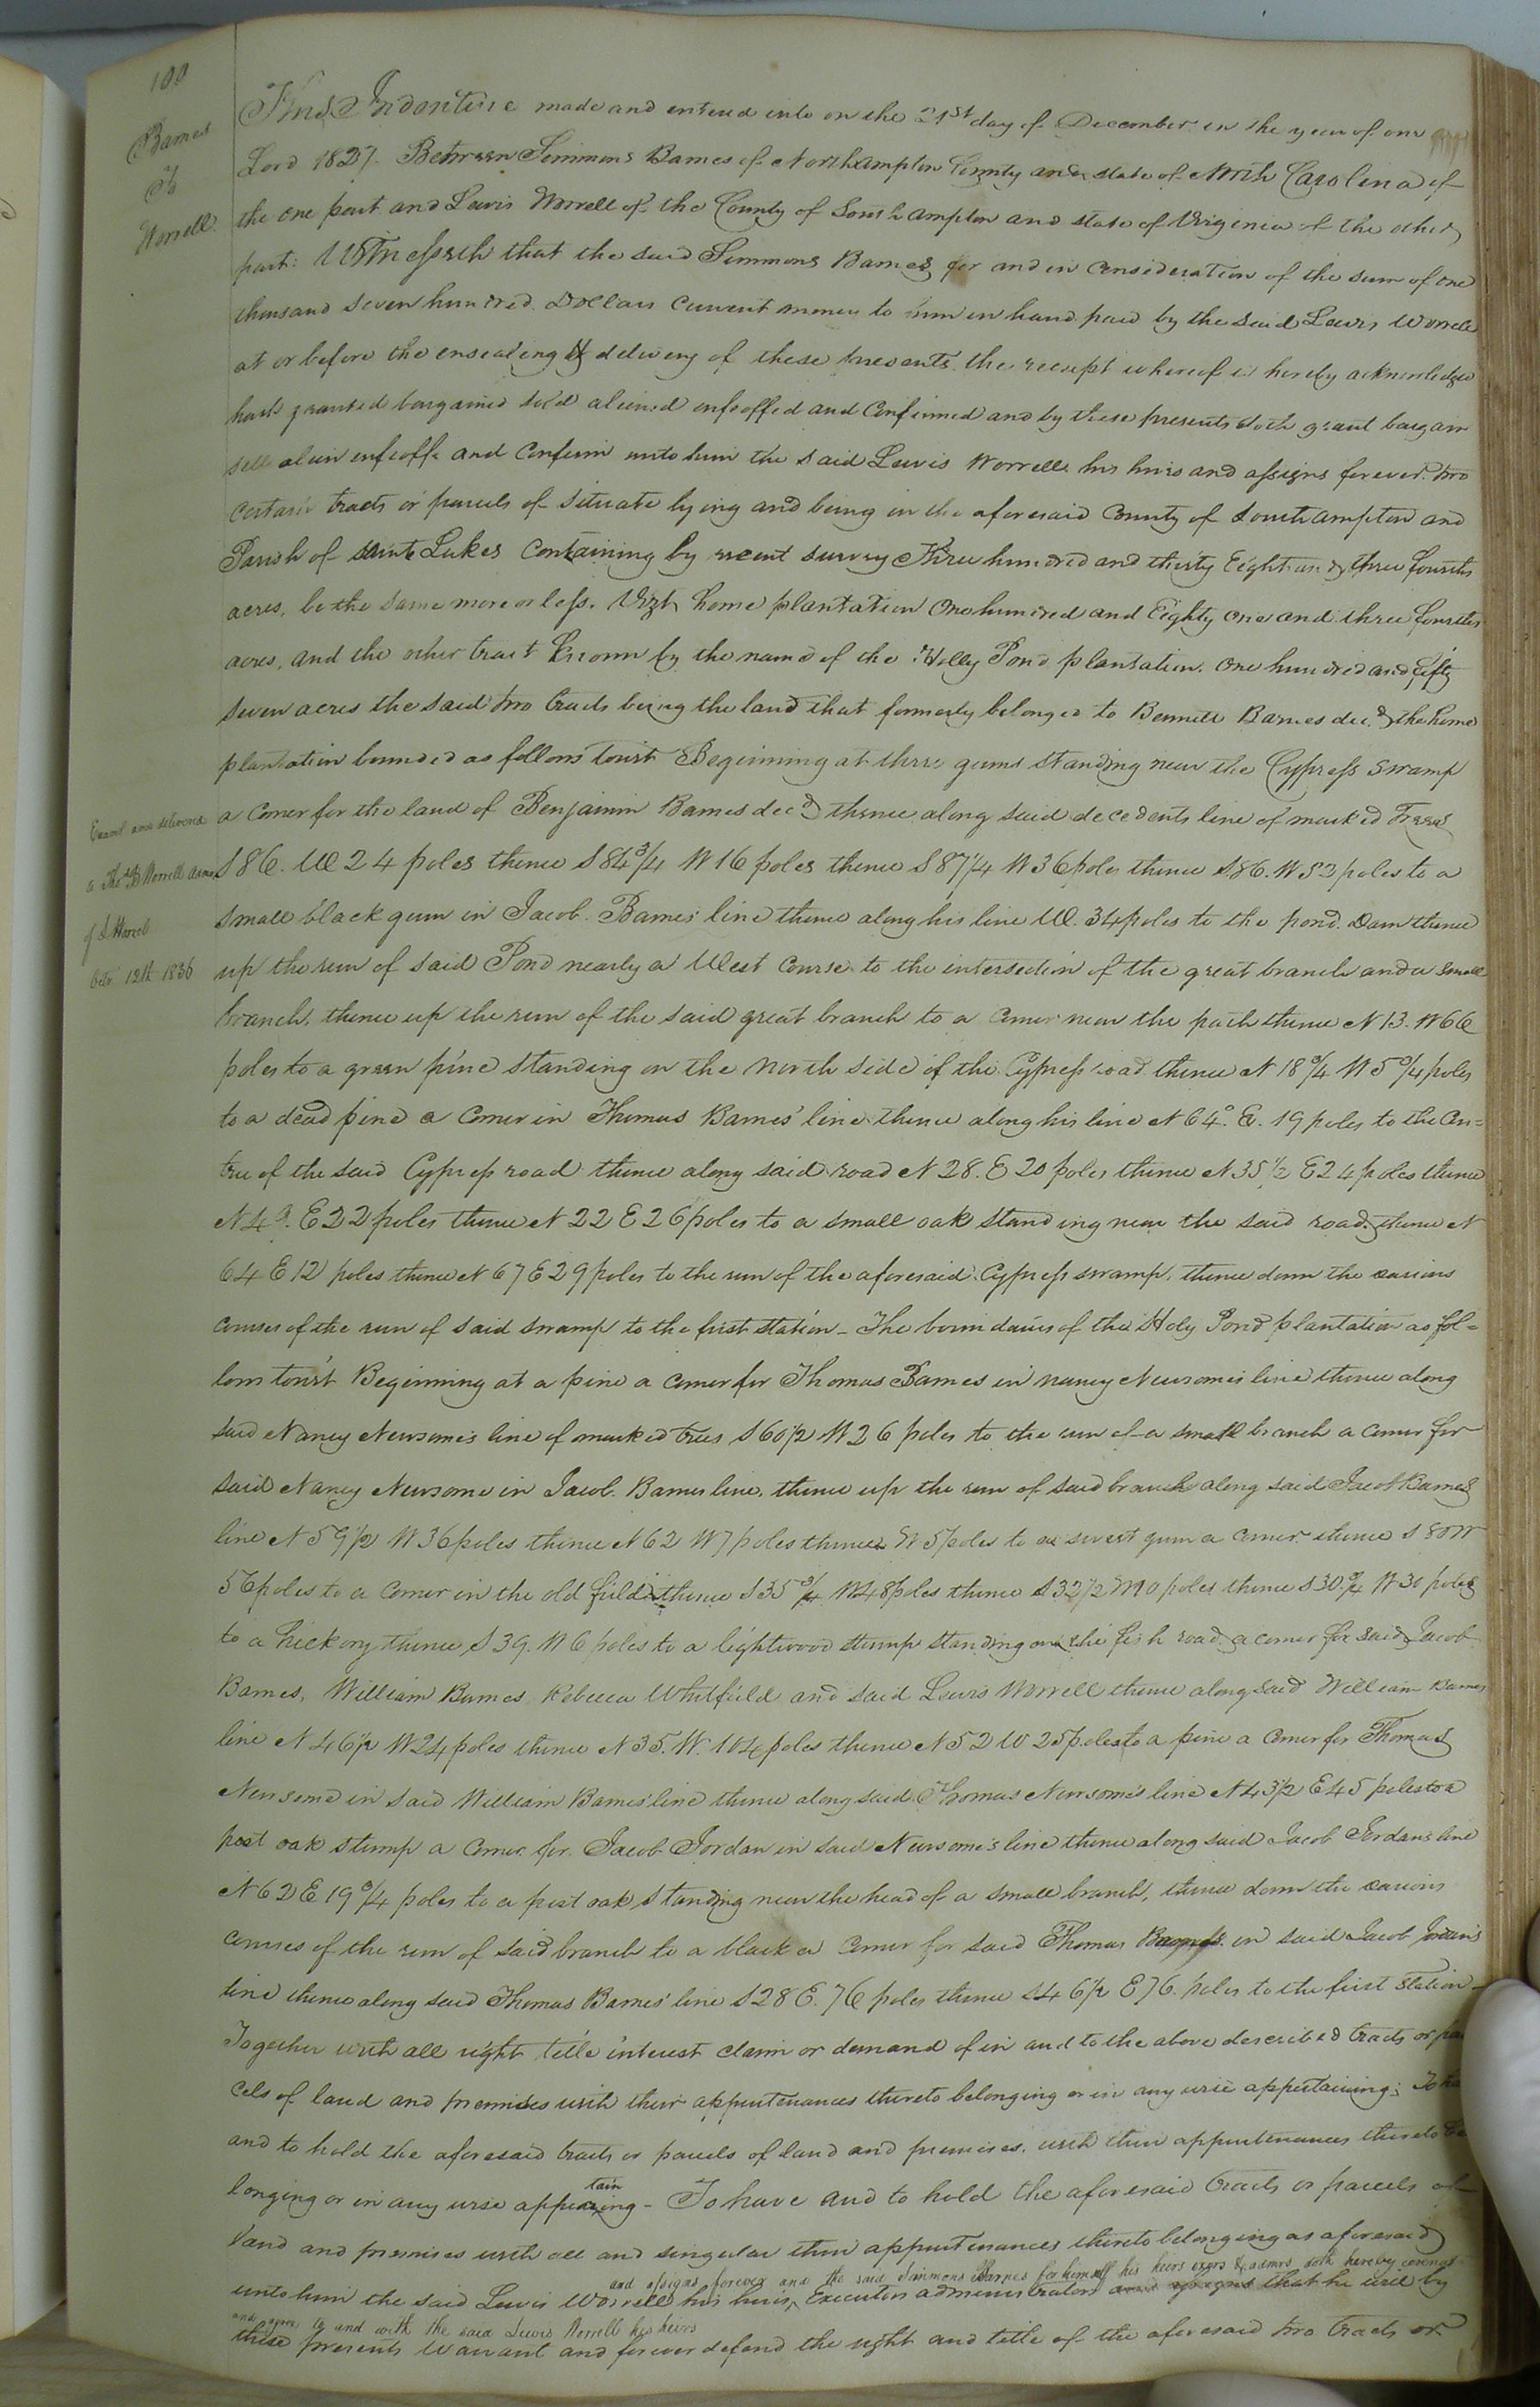 100
Barnes
To
Worrell
This Indenture made and entered into on the 21st day of December in the year of our
Lord 1827. Between Simmons Barnes of Northampton County and state of North Carolina of
the one part and Lewis Worrell of the County of Southampton and state of Virginia of the other
part: Witnesseth that the said Simmons Barnes for and in consideration of the sum of one
thousand seven hundred Dollars current money to him in hand paid by the said Lewis Worrell
at or before the ensealing & delivery of these presents the receipt whereof is hereby acknowledged
hath granted bargained sold aliened enfeoffed and confirmed and by these presents doth grant bargain
sell alien enfeoff and confirm unto him the said Lewis Worrell his heirs and assigns forever two
certain tracts or parcels of situate lying and being in the aforesaid County of Southampton and
Parish of Saint Lukes containing by recent survey Three hundred and thirty Eight and three fourths
acres, be the same more or less. Vizt, home plantation One hundred and Eighty one and three fourths
acres, and the other tract known by the name of the Holly Pond plantation. One hundred and fifty
seven acres the said two tracts being the land that formerly belonged to Bennett Barnes decd. the home
plantation bounded as follows towit Beginning at three gums standing near the Cypress Swamp
a corner for the land of Benjamin Barnes decd thence along said decedents line of marked Trees
Examd and delivered
to Thos. B Worrell
of L Worrell
Octr 12th 1836
S 86. W 24 poles thence S 84 3/4 W 16 poles thence S 87 1/4 W 36 poles thence S. 86. W 52 poles to a
small black gum in Jacob Barnes' line thence along his line W. 34 poles to the pond. Dam thence
up the run of said Pond nearly a West course to the intersection of the great branch and a small
branch, thence up the run of the said great branch to a corner near the path thence N 13. W 66
poles to a green pine standing on the north side of the Cypress road. thence N 18 3/4 W 5 3/4 poles
to a dead pine a corner in Thomas Barnes' line thence along his line N 64°. E. 19 poles to the Cen=
tre of the said Cypress road thence along said road N 28. E 20 poles thence N 35 1/2 E 24 poles thence
N 49. E 22 poles thence N 22 E 26 poles to a small oak standing near the said road, thence N
64 E 12 poles thence N 67 E 29 poles to the run of the aforesaid Cypress swamp, thence down the various
courses of the run of said swamp to the first station - The boundaries of the Holy Pond plantation as fol=
lows towit Beginning at a pine a corner for Thomas Barnes in nancy Newsomes line thence along
said Nancy Newsome's line of marked trees S 60 1/2 W 26 poles to the run of a small branch a corner for
said Nancy Newsome in Jacob. Barnes line, thence up the run of said branch along said Jacob Barnes
line N 59 1/2 W 36 poles thence N 62 W 7 poles thence W 5 poles to a sweet gum a corner thence S 80 W
56 poles to a corner in the old field thence S 35 3/4 W 48 poles thence S 32 1/2 W 10 poles thence S 30 3/4 W 30 poles
to a hickory thence S 39. W 6 poles to a lightwood stump standing on the fish road a corner for said Jacob
Barnes, William Barnes Rebecca Whitfield and said Lewis Worrell thence along said William Barnes
line N 46 1/2 W 24 poles thence N 35. W. 104 poles thence N 52 W 25 poles to a pine a corner for Thomas
Newsome in said William Barnes' line thence along said Thomas Newsome's line N 43 1/2 E 45 poles to a
post oak stump a corner for Jacob Jordan in said Newsome's line thence along said Jacob Jordan's line
N 62 E 19 3/4 poles to a post oak standing near the head of a small branch, thence down the various
courses of the run of said branch to a black a corner for said Thomas Barnes in said Jacob Jordan's
line thence along said Thomas Barnes' line S 28 E. 76 poles thence S 46 1/2 E 76. poles to the first station -
Together with all right title interest claim or demand of in and to the above described tracts or par
cels of land and premises with their appurtenances thereto belonging or in any wise appertaining; To ha
and to hold the aforesaid tracts or parcels of land and premises. with their appurtenances thereto be
longing or in any wise appertaining - To have and to hold the aforesaid tracts or parcels of
land and premises with all and singular their appurtenances thereto belonging as aforesaid
and assigns forever and the said Simmons Barnes for himself his heirs exors & admrs doth hereby covenant
unto him the said Lewis Worrell his heirs, Executors administrators and assigns that he will by
and agree to and with the said Lewis Worrell his heirs
these presents warrant and forever defend the right and title of the aforesaid two tracts or